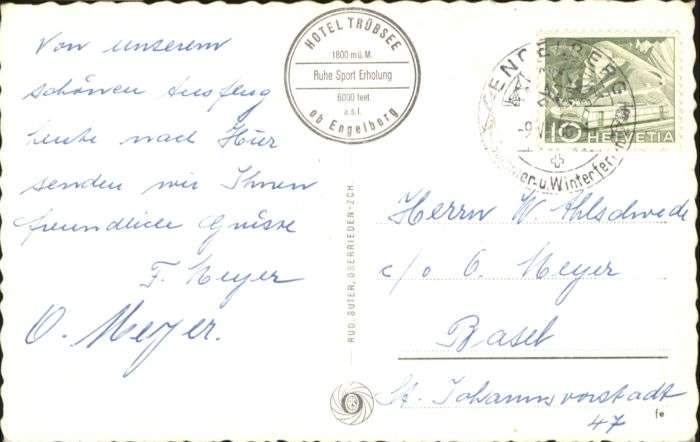 Von unserem
schönen Ausflug
heute nach Hier
senden wir Ihnen
freundliche Grüsse
F. Meyer
O. Meyer.
HOTEL TRÜBSEE
1800 m ü. M.
Ruhe Sport Erholung
6000 feet
a.s.l.
ob Engelberg
RUD. SUTER, OBERRIEDEN-ZCH.
ENGELBERG
-9.
u. Winterfer
10 HELVETIA
Herrn W. Ahlschwede
c/o O. Meyer
Basel
St. Johannsvorstadt
47
fe